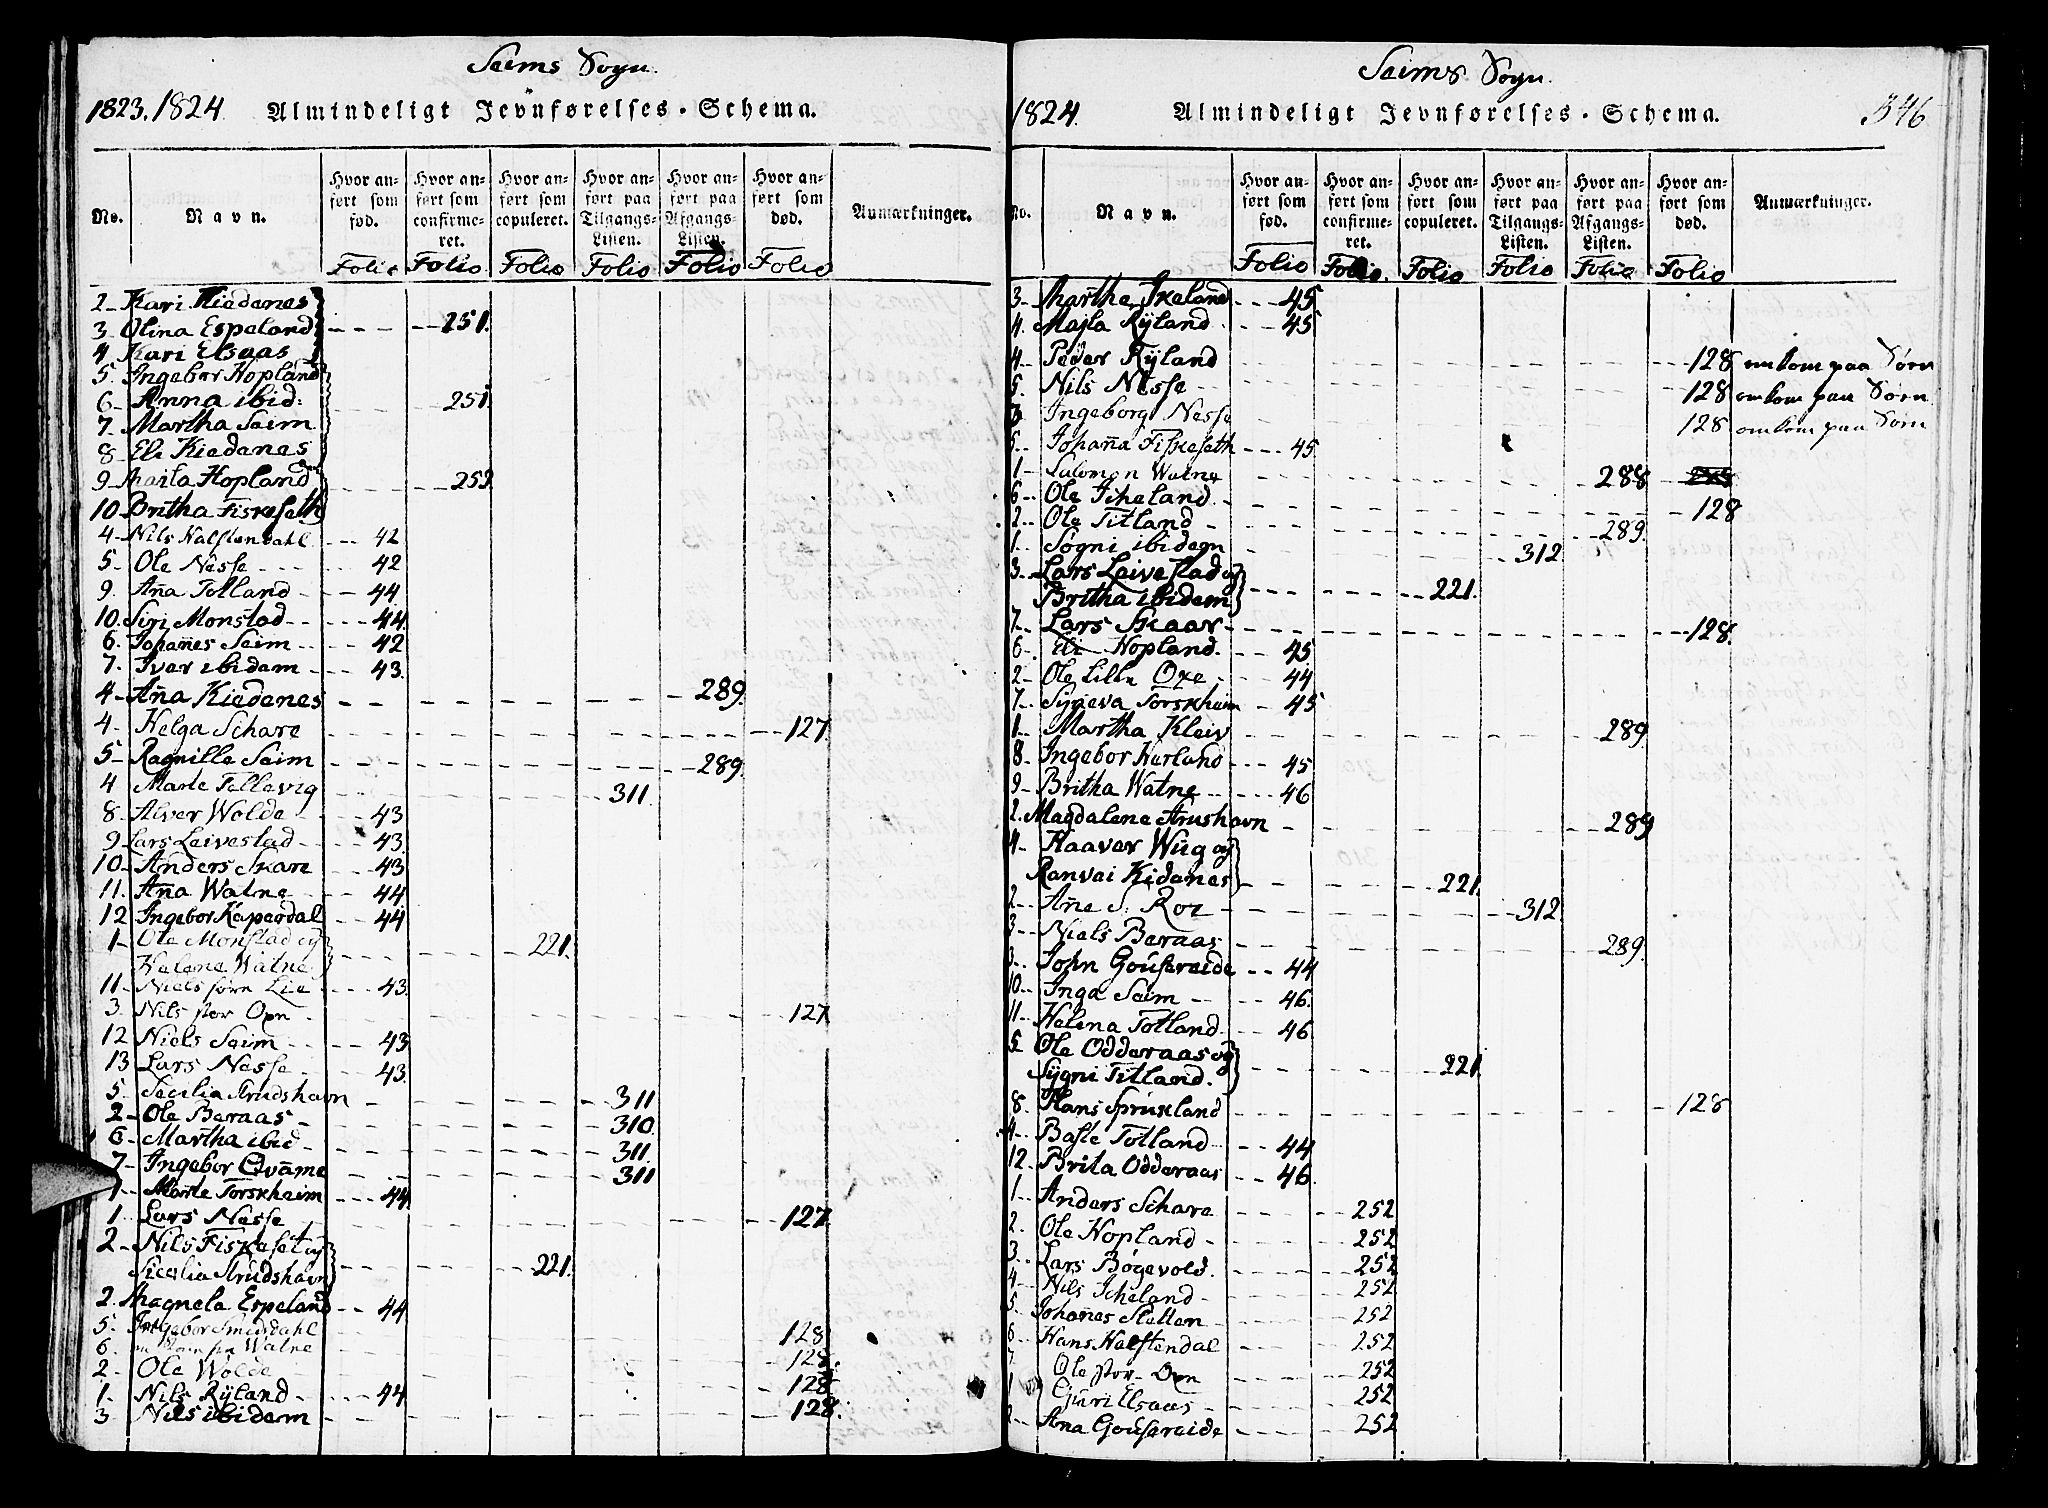 Seims Sogn.
1823. 1824. Almindeligt Jevnførelses-Schema.
No. Navn. Hvor anført som fød. Folio Hvor anført som confirmeret. Folio Hvor anført som copuleret. Folio Hvor anført paa Tilgangs-Listen. Folio Hvor anført paa Afgangs-Listen. Folio Hvor anført som død. Folio Anmærkninger.
2 Kari Kiedenes
3 Olina Espeland 251.
4 Kari Elsaas
5 Ingebor Hopland
6 Anna ibid: 251.
7 Martha Seim
8 Eli Kiedenes
9 Marta Hopland 252
10 Britha Fiskeseth
4 Nils Halstendahl 42
5 Ole Nesse 42
9 Aña Totland 44
10 Siri Monstad 44
6 Johañes Seim 42
7 Iver ibidem 43
4 Aña Kiedenes 289.
4 Helga Schare 127
5 Ragnille Seim 289.
4 Marte Tellevig 311
8 Alver Wolde 43
9 Lars Leivestad 43.
10 Anders Skare 43
11 Aña Watne 44
12 Ingebor Kaperdal 44
1 Ole Monstad og
Helene Watne 221.
11 Niels sørn Lie 43.
3 Nils stor Oxn 127
12 Niels Seim 43
13 Lars Nesse 43.
5 Secilia Trudshavn 311
2 Ole Beraas 310.
6 Martha ibid 311.
7 Ingebor Qvame 311
1 Marte Torskheim 44
1 Lars Nesse 127
2 Nils Fiskeset og
Sicelia Trudshavn 221.
2 Magnela Espeland 44
5 Ingebor Smedsdahl 128
6 Watne 128.
2 Ole Wolde 128
1 Nils Ryland 44
3 Nils ibidem 128.
Seims Sogn.
1824. Almindeligt Jevnførelses-Schema. 346
No. Navn. Hvor anført som fød. Folio Hvor anført som confirmeret. Folio Hvor anført som copuleret. Folio Hvor anført paa Tilgangs-Listen. Folio Hvor anført paa Afgangs-Listen. Folio Hvor anført som død. Folio Anmærkninger.
3 Martha Ikeland 45
4 Majla Ryland 45
4 Peder Ryland 128 omkom paa Søen
5 Nils Nesse 128 omkom paa Søen
6 Ingeborg Nesse 128 omkom paa Søen
5 Johaña Fiskeseth 45
1 Salomon Watne 288
6 Ole Ikeland 128
2 Ole Titland 289
1 Sogni ibidem 312
3 Lars Leivestad og
Britha ibidem 221.
7 Lars Skaar 128.
6 Eli Hopland 45
2 Ole Lille Oxe 44
7 Syneva Torskheim 45
1 Martha Kleiv 289
8 Ingebor Herland 45
9 Britha Watne 46
2 Magdalene Trushavn 289
4 Haaver Wiig og
Ranvai Kidenes 221.
2 Añe S. Roe 312
3 Niels Beraas 289.
3 John Gousereide 44
10 Inga Seim 46.
11 Helena Totland 46
5 Ole Odderaas og
Sygni Titland. 221
8 Hans Spruxland 128
4 Baste Totland 44
12 Brita Odderaas 46
1 Anders Schare 252
2 Ole Hopland 252
3 Lars Bøgevold. 252
4 Nils Icheland 252
5 Johañes Sletten 252
6 Hans Halstendal 252
7 Ole stor Oxn 252
1 Guri Elsaas 252
2 Ana Gousereide 252